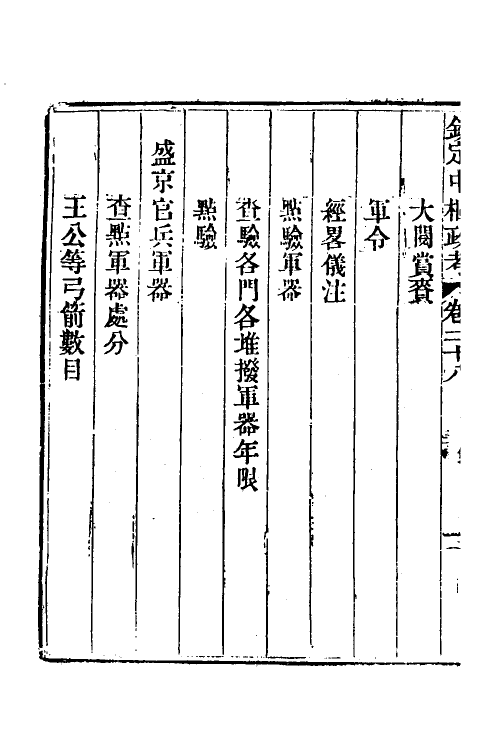 欽定中樞政考 卷三十八
大閱賞賚
軍令
經畧儀注
㸃驗軍器
查驗各門各堆撥軍器年限
㸃驗
盛京官兵軍器
查㸃軍器處分
王公等弓箭數目